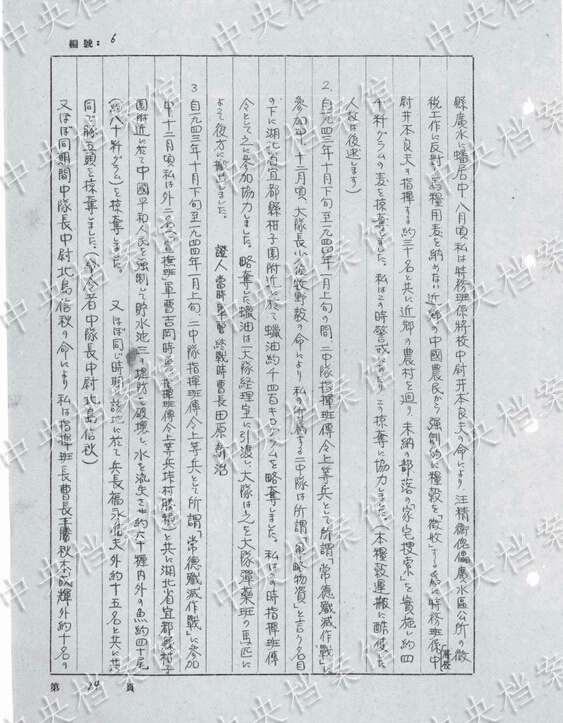 編號: 6
縣廣水に蟠居中、八月頃、私は特務班係将校中尉井本良夫の命により、汪精衛傀儡廣水區公所の徴
税工作に反対し馬糧用麦を納めない近郷の中國農民から強制的に糧穀を「徴收」する為に特務班係将校中
尉井本良夫の指揮する約三十名と共に近郷の農村を廻り、未納の部落の「家宅捜索」を実施し約四
千粁グラムの麦を掠奪しました。私はこの時警戒にあたり、この掠奪に協力しました。(本糧穀運搬に酷使した
人数は後述します)
2. 自一九四三年十月下旬至一九四四年一月上旬の間、二中隊指揮班傳令上等兵として所謂「常德殲滅作戰」に
参加中、十二月頃、大隊長小佐牧野毅の命により、私の所属する二中隊は所謂「戰略物資」と言う名目
の下に湖北省宜都縣柑子園附近に於て蠟油約千四百キログラムを略奪しました。私はこの時指揮班傳
令として之に参加協力しました。略奪した蠟油は一大隊経理室に引渡し大隊は之を大隊彈藥班の馬匹に
よって後方に搬出しました。 證人 當時軍曹終戰時曹長田原
3 自一九四三年十月下旬至一九四四年一月上旬、二中隊指揮班傳令上等兵として所謂「常德殲滅作戰」に参加
中、十二月頃、私は外二名 指揮班軍曹吉岡時 指揮班傳令上等兵 村勝 と共に湖北省宜都縣柑子
園附近に於て中國平和人民を強制して貯水池三の堤防を破壊し、水を流失させ約六十糎内外の魚約四十尾
(約八十粁グラム)を掠奪しました。 又ほぼ同じ時期、該地に於て兵長福永 夫外約十五名と共に共
同で豚五頭を掠奪しました。(命令者中隊長中尉北島信秋)
又ほぼ同期間中隊長中尉北島信秋の命により、私は指揮班長曹長 秋本 輝外約十名の
第 14 頁
中央档案馆